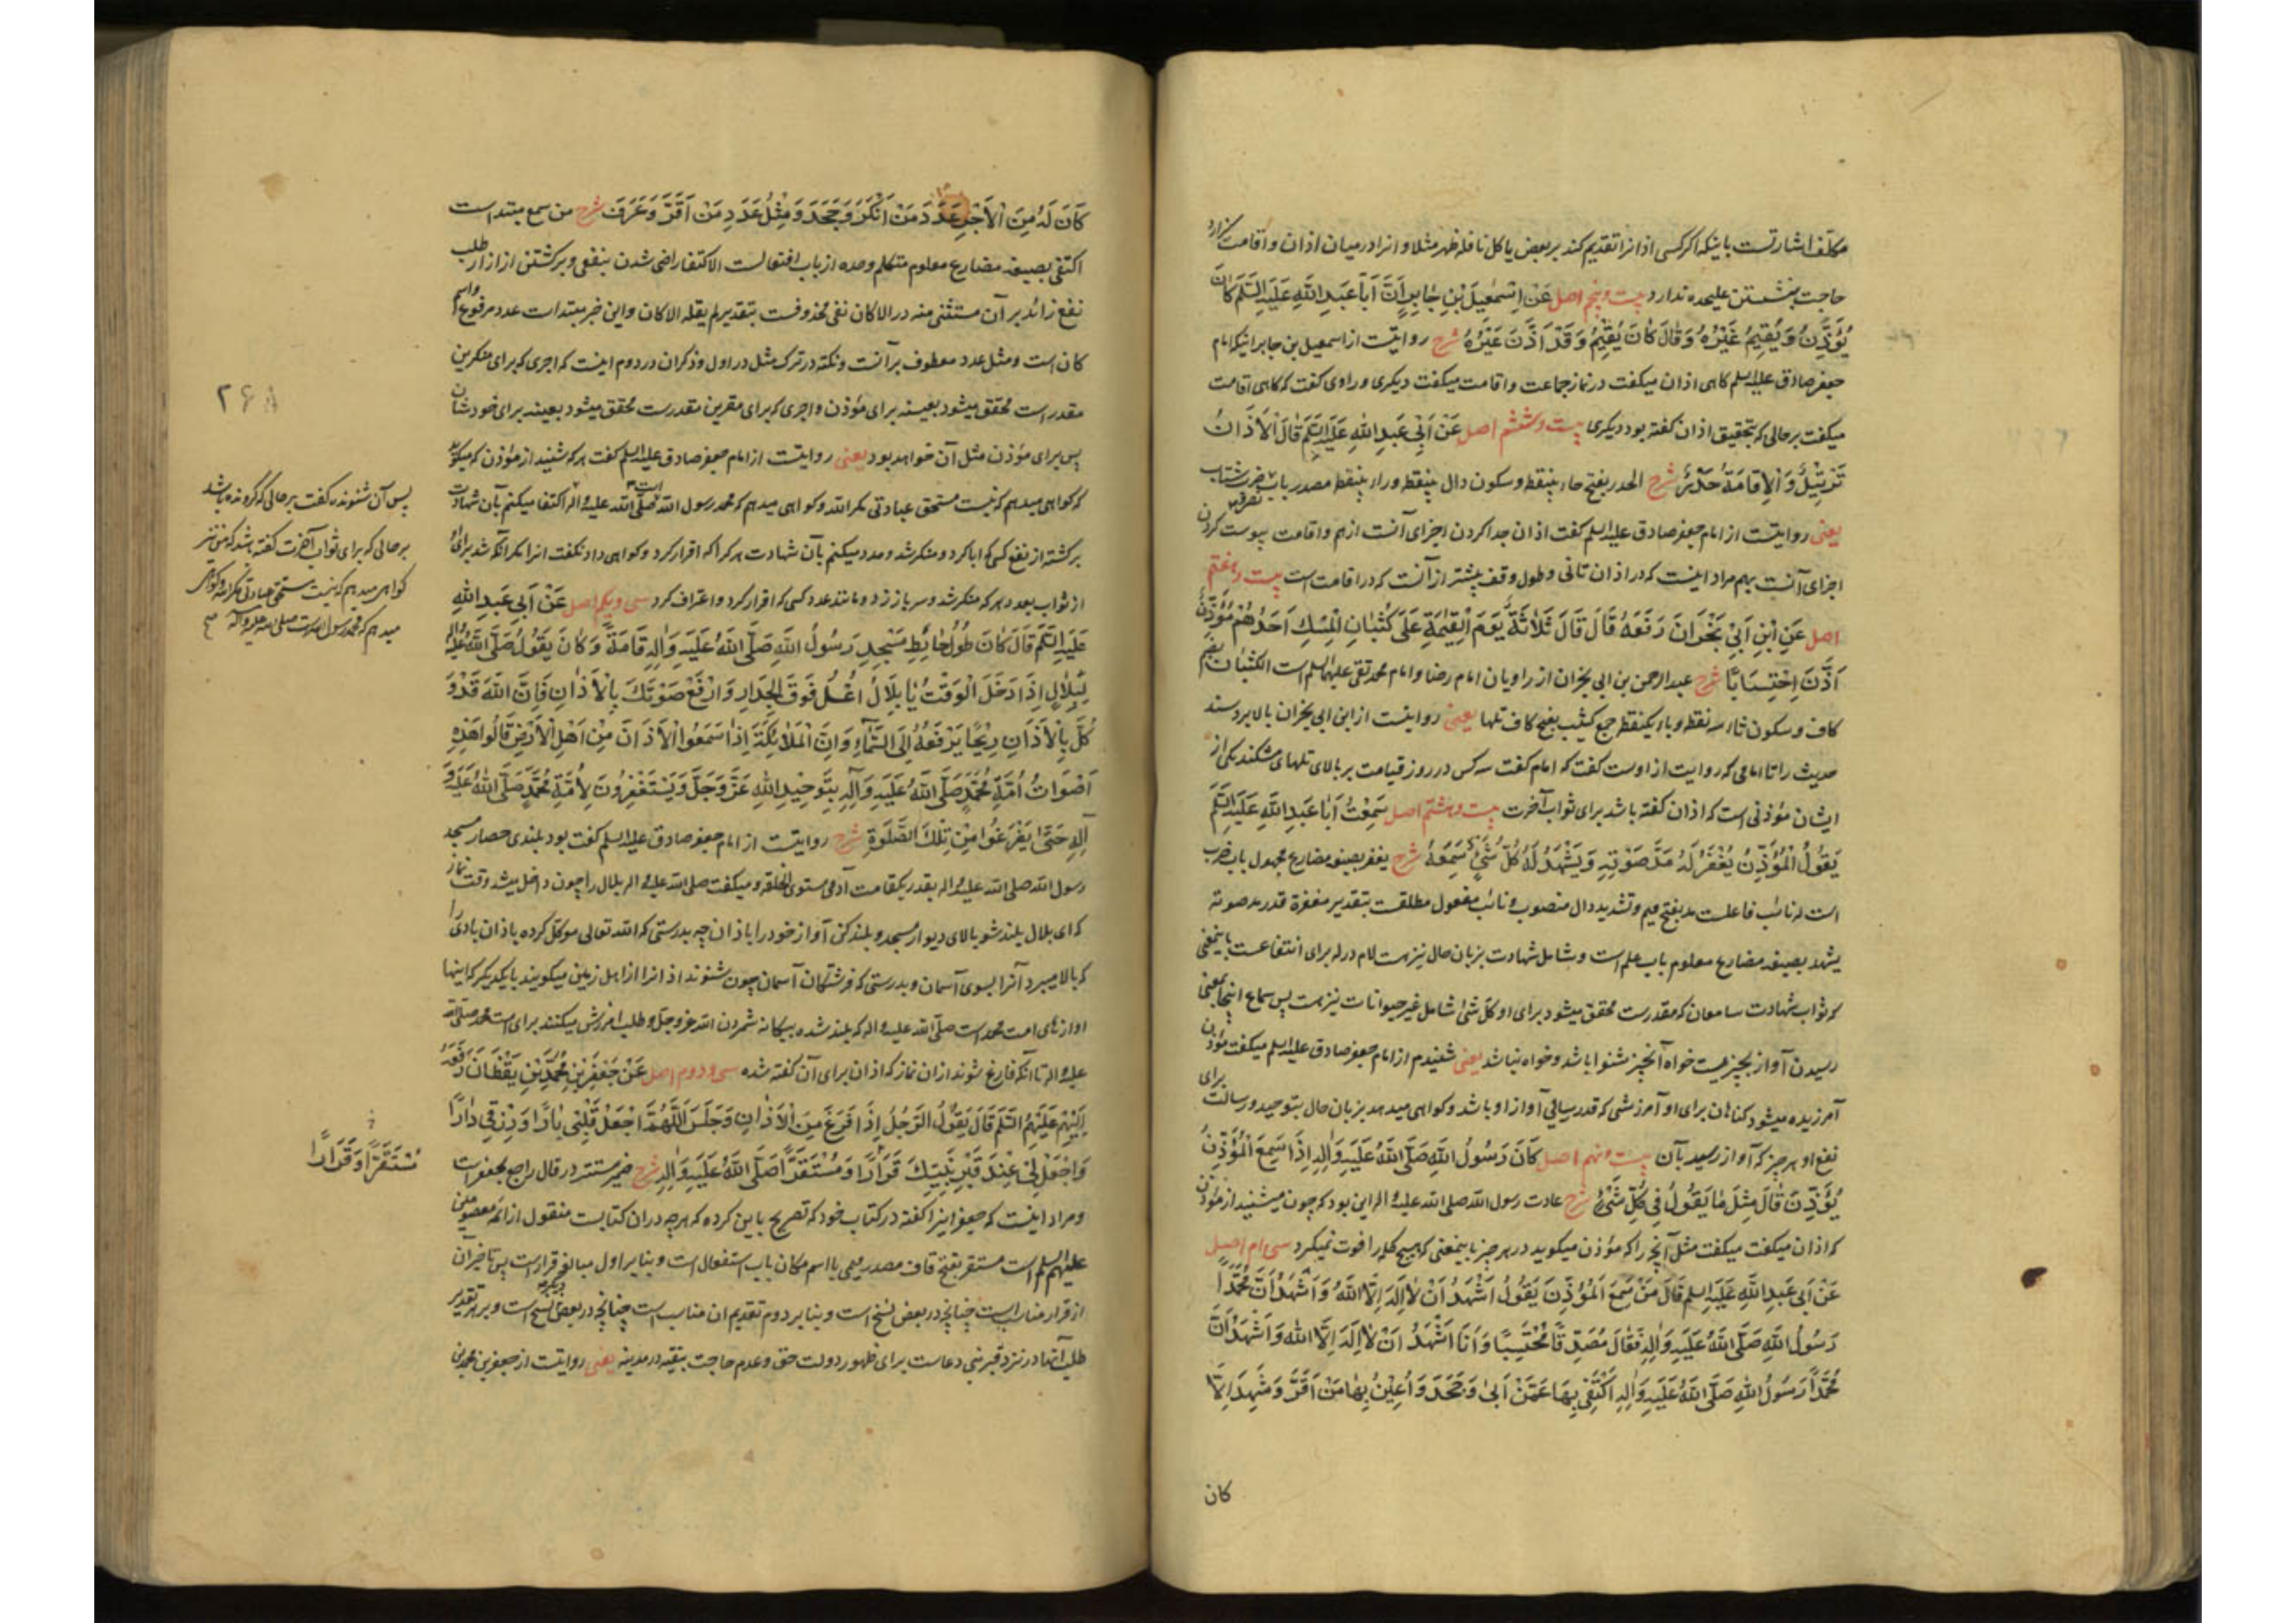 مکلّف اشارتست باینکه اکر کسی اذانرا تقدیم کند بر بعض یا کل نافله ظهر مثلا و انرا در میان اذان و اقامت کزارد
حاجت بنشستن علیحده ندارد بیست و پنجم اصل عَنْ اِسْمٰعِیلَ بْنِ جٰابِرٍ اَنَّ اَبٰا عَبدِ اللهِ عَلَیهِ السَّلَم کَانَ
یُؤَذِّنُ وَ یُقِیمُ غَیْرُهُ وَ قٰالَ کٰانَ یُقِیمُ وَ قَدْ اَذَّنَ غَیْرُهُ شرح روایتست از اسمعیل بن جابر اینکه امام
جعفر صادق علیه السلم کاهی اذان میکفت در نماز جماعت و اقامت میکفت دیکری و راوی کفت که کاهی اقامت
میکفت بر حالی که بتحقیق اذان کفته بود دیکری بیست و ششم اصل عَنْ اَبِی عَبدِ اللهِ عَلَیهِ السَّلَم قَالَ الْاَذَانُ
تَرْتِیْلٌ وَ الْاِقٰامَةُ حَدْرٌ شرح الحدر بفتح حاء بینقطه و سکون دال بینقطه و راء بینقطه مصدر باب نصر و ضرب شتاب
یعنی روایتست از امام جعفر صادق علیه السلم کفت اذان جدا کردن اجزای آنست از هم و اقامت پیوست کردن
اجزای آنست بهم مراد اینست که در اذان تانی و طول وقف بیشتر از آنست که در اقامت است بیست و هفتم
اصل عَنِ ابْنِ اَبِیْ نَجْرَانَ رَفَعَهُ قَالَ قَالَ ثَلَاثَةٌ یَوْمَ الْقِیٰمَةِ عَلَی کُثْبَانِ الْمِسْكِ اَحَدُهُمْ مُؤَذِّنٌ
اَذَّنَ اِحْتِسَابًا شرح عبد الرحمن بن ابی نجران از راویان امام رضا و امام محمد تقی علیهما السلم است الکثبان بضم
کاف و سکون ثاء سه نقطه و باء یکنقطه جمع کثیب بفتح کاف تلها یعنی روایتست از ابن ابی نجران بالا برد سند
حدیث را تا امامی که روایت از اوست کفت که امام کفت سه کس در روز قیامت بر بالای تلهای مشکند یکی از
ایشان مؤذنی است که اذان کفته باشد برای ثواب آخرت بیست و هشتم اصل سَمِعْتُ اَبٰا عَبدِ اللهِ عَلَیهِ السَّلَم
یَقُولُ الْمُؤَذِّنُ یُغْفَرُ لَهُ مَدَّ صَوْتِهِ وَ یَشْهَدُ لَهُ کُلُّ شَیْءٍ سَمِعَهُ شرح یغفر بصیغه مضارع مجهول باب ضرب
است له نائب فاعلست مد بفتح میم و تشدید دال منصوب و نائب مفعول مطلقست بتقدیر مغفرة قدر مد صوته
یشهد بصیغه مضارع معلوم باب علم است و شامل شهادت بزبان حال نیز هست لام در له برای انتفاعست باینمعنی
که ثواب شهادت سامعان که مقدرست محقق میشود برای او کل شیء شامل غیر حیوانات نیز هست پس سماع اینجا بمعنی
رسیدن آواز بچیزیست خواه آنچیز شنوا باشد و خواه نباشد یعنی شنیدم از امام جعفر صادق علیه السلم میکفت مؤذن
آمرزیده میشود کناهان برای او آمرزشی که قدر رسائی آواز او باشد و کواهی میدهد بزبان حال بتوحید و رسالت برای
نفع او هر چیز که آواز رسید بآن بیست و نهم اصل کَانَ رَسُولُ اللهِ صَلَّی اللهُ عَلَیهِ وَ اٰلِهِ اِذَا سَمِعَ الْمُؤَذِّنَ
یُؤَذِّنَ قَالَ مِثْلَ مٰا یَقُولُ فِی کُلِّ شَیْءٍ شرح عادت رسول الله صلی الله علیه و اله این بود که چون میشنید از مؤذن
که اذان میکفت میکفت مثل آنچه را که مؤذن میکوید در هر چیز باینمعنی که هیچ کله را فوت نمیکرد سی ام اصل
عَنْ اَبِی عَبدِ اللهِ عَلَیهِ السلم قَالَ مَنْ سَمِعَ الْمُؤَذِّنَ یَقُولُ اَشْهَدُ اَنْ لٰا اِلٰهَ اِلَّا اللهُ وَ اَشْهَدُ اَنَّ مُحَمَّدًا
رَسُولُ اللهِ صَلَّی اللهُ عَلَیهِ وَ اٰلِهِ فَقٰالَ مُصَدِّقًا مُحْتَسِبًا وَ اَنَا اَشْهَدُ اَنْ لٰا اِلٰهَ اِلَّا اللهُ وَ اَشْهَدُ اَنَّ
مُحَمَّدًا رَسُولُ اللهِ صَلَّی اللهُ عَلَیهِ وَ اٰلِهِ اَکْتَفِی بِهَا عَمَّنْ اَبیٰ وَ جَحَدَ وَ اُعِیْنُ بِهٰا مَنْ اَقَرَّ وَ شَهِدَ اِلَّا
کان
کَانَ لَهُ مِنَ الْاَجْرِ عَدَدَ مَنْ اَنْکَرَ وَ جَحَدَ وَ مِثْلُ عَدَدِ مَنْ اَقَرَّ وَ عَرَفَ شرح من سمع مبتداست
اکتفی بصیغه مضارع معلوم متکلم وحده از باب افتعالست الاکتفا راضی شدن بنفعی و برکشتن از ازار طلب
نفع زائد بر آن مستثنی منه در الا کان نفی محذوفست بتقدیر لم یقله الا کان و این خبر مبتداست عدد مرفوع و اسم
کان است و مثل عدد معطوف بر آنست و نکته در ترک مثل در اول و ذکر ان در دوم اینست که اجری که برای منکرین
مقدر است محقق میشود بعینه برای مؤذن و اجری که برای مقرین مقدرست محقق میشود بعینه برای خودشان
پس برای مؤذن مثل آن خواهد بود یعنی روایتست از امام جعفر صادق علیه السلم کفت هر که شنید از مؤذن که میکوید
که کواهی میدهم که نیست مستحق عبادتی مکر الله و کواهی میدهم که محمد رسول الله است صلّی الله علیه و اله اکتفا میکنم بآن شهادت
برکشته از نفع کسی که ابا کرد و منکر شد و مدد میکنم بآن شهادت هر کرا که اقرار کرد و کواهی داد نکفت انرا مکر آنکه شد برای او
از ثواب بعدد هر که منکر شد و سر باز زد و مانند عدد کسی که اقرار کرد و اعتراف کرد سی و یکم اصل عَنْ اَبِی عَبدِ اللهِ
عَلَیهِ السَّلَم قَالَ کَانَ طُولُ حٰائِطِ مَسْجِدِ رَسُولِ اللهِ صَلَّی اللهُ عَلَیهِ وَ اٰلِهِ قَامَةً وَ کَانَ یَقُولُ صَلَّی اللهُ عَلَیهِ و اله
لِبِلٰالٍ اِذَا دَخَلَ الْوَقْتُ یٰا بِلٰالُ اعْلُ فَوْقَ الْجِدَارِ وَ ارْفَعْ صَوْتَكَ بِالْاَذٰانِ فَاِنَّ اللهَ قَدْ وَ
کَّلَ بِالْاَذَانِ رِیْحًا یَرْفَعُهُ اِلَی السَّمٰاءِ وَ اِنَّ الْمَلٰائِکَةَ اِذٰا سَمِعُوا الْاَذَانَ مِنْ اَهْلِ الْاَرْضِ قَالُوا هَذِهِ
اَصْوَاتُ اُمَّةِ مُحَمَّدٍ صَلَّی اللهُ عَلَیهِ وَ اٰلِهِ بِتَوْحِیْدِ اللهِ عَزَّ وَ جَلَّ وَ یَسْتَغْفِرُونَ لِاُمَّةِ مُحَمَّدٍ صَلَّی اللهُ عَلَیهِ وَ
اٰلِهِ حَتَّی یَفْرَغُوا مِنْ تِلْكَ الصَّلٰوةِ شرح روایتست از امام جعفر صادق علیه السلم کفت بود بلندی حصار مسجد
رسول الله صلی الله علیه و اله بقدر یکقامت آدمی مستوی الخلقه و میکفت صلی الله علیه و اله بلال را چون داخل میشد وقت نماز
که ای بلال بلند شو بالای دیوار مسجد و بلند کن آواز خود را باذان چه بدرستی که الله تعالی موکل کرده باذان بادی را
که بالا میبرد آنرا بسوی آسمان و بدرستی که فرشتکان آسمان چون شنوند اذانرا از اهل زمین میکویند با یکدیکر که اینها
اوازهای امت محمد است صلّی الله علیه و اله که بلند شده بیکانه شمردن الله عز و جل و طلب امرزش میکنند برای امت محمد صلی الله
علیه و اله تا آنکه فارغ شوند از ان نماز که اذان برای آن کفته شده سی و دوم اصل عَنْ جَعْفَرِ بْنِ مُحَمَّدِ بْنِ یَقْظَانَ رَفَعَهُ
اِلَیْهِمْ عَلَیْهِمُ السَّلَم قَالَ یَقُوْلُ الرَّجُلُ اِذَا فَرَغَ مِنَ الْاَذٰانِ وَ جَلَسَ اَللّٰهُمَّ اجْعَلْ قَلْبِی بٰارًّا وَ رِزْقِی دَارًّا
وَ اجْعَلْ لِیْ عِنْدَ قَبْرِ نَبِیِّكَ قَرَارًا وَ مُسْتَقَرًّا صَلَّی اللهُ عَلَیهِ وَ اٰلِهِ شرح ضمیر مستتر در قال راجع بجعفر است
و مراد اینست که جعفر اینرا کفته در کتاب خود که تصریح باین کرده که هر چه در ان کتابست منقول از ائمه معصومین
علیهم السلم است مستقر بفتح قاف مصدر میمی یا اسم مکان باب استفعال است و بنابر اول مبالغه قرار است پس تاخیر آن
از قرار مناسبست چنانچه در بعض نسخ است و بنابر دوم تقدیم ان مناسب است چنانچه در بعض دیکر نسخ است و بر هر تقدیر
طلب آنها در نزد قبر نبی دعاست برای ظهور دولت حق و عدم حاجت بتقیه در مدینه یعنی روایتست از جعفر بن محمد بن
۲۶۸
پس آن شنونده کفت بر حالی که کرونده باشد
بر حالی که برای ثواب آخرت کفته باشد که من نیز
کواهی میدهم که نیست مستحق عبادتی مکر الله و کواهی
میدهم که محمد رسول الله است صلی الله علیه و آله صح
مُسْتَقَرًّا وَ قَرَارًا